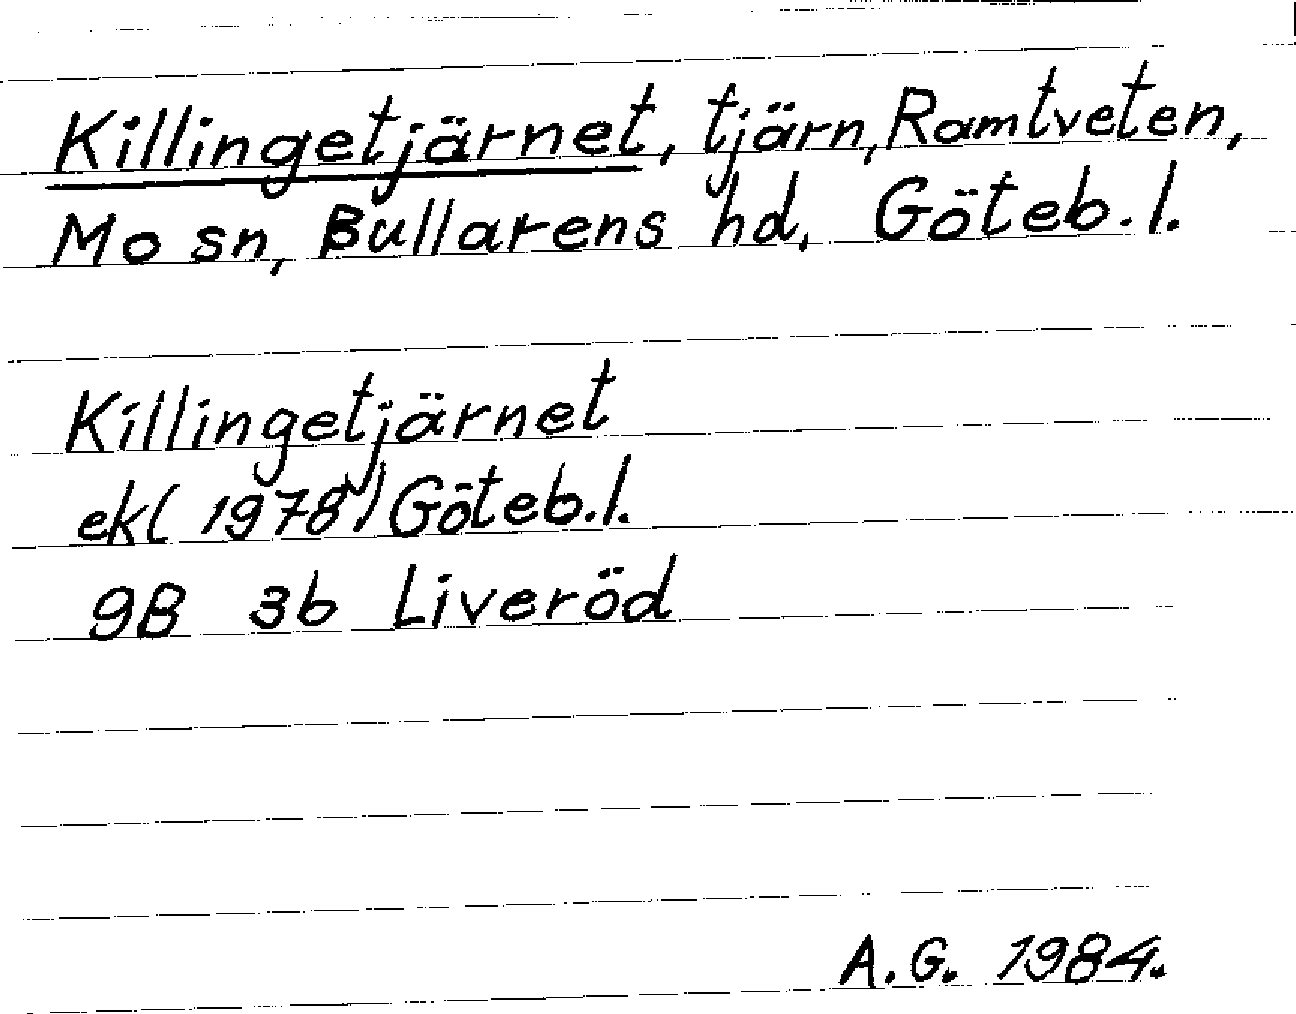 Killingetjärnet, tjärn, Ramtveten,
Mo sn, Bullarens hd, Göteb. l.
Killingetjärnet
ek( 1978) Göteb. l.
9B 3b Liveröd
A.G. 1984.